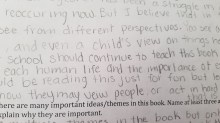 a struggle
reoccuring now But I believe kids in
see from different perspectives,
and even a child's view on things
school should continue to teach this book
each human life and the importance of e
d be reading this just for fun but
how they may vew people or act in
here are many important ideas/themes in this book. Name at least three a
xplain why they are important.
themes in the book but one